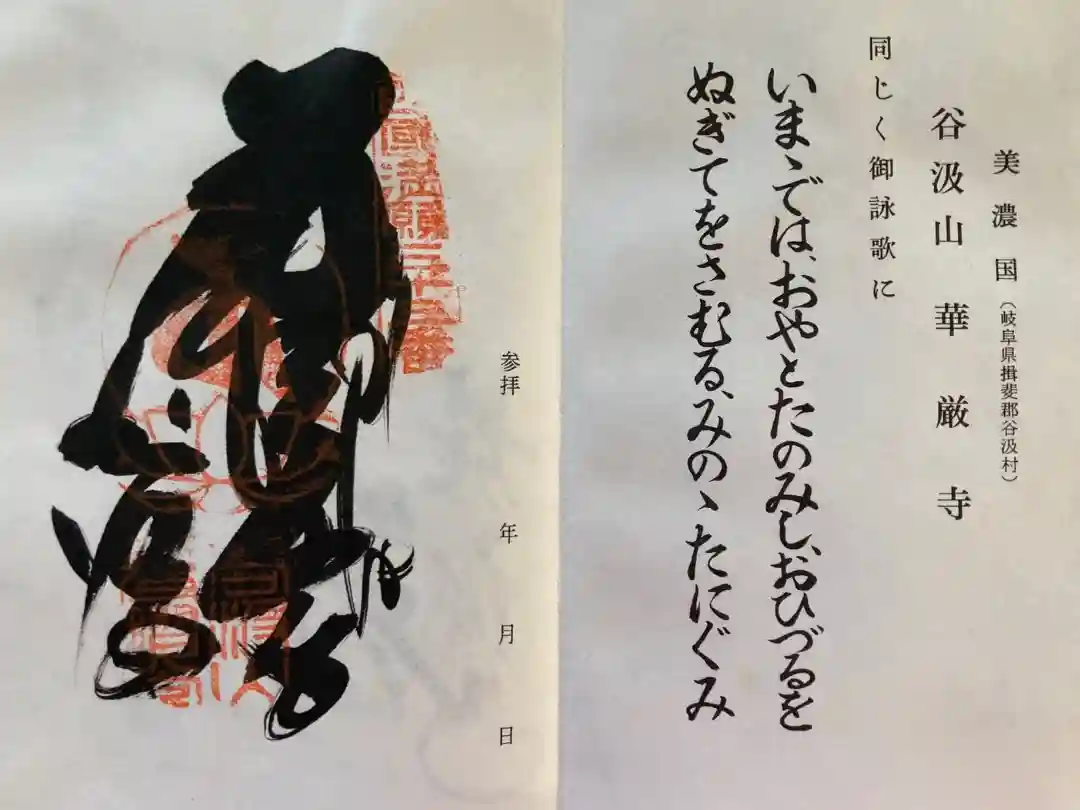 美濃国(岐阜県揖斐郡谷汲村)
谷汲山 華厳寺
同じく御詠歌に
いまゝでは、おやとたのみし、おひづるを
ぬぎてをさむる、みのゝたにぐみ
参拝 年 月 日
西國満願三十三番